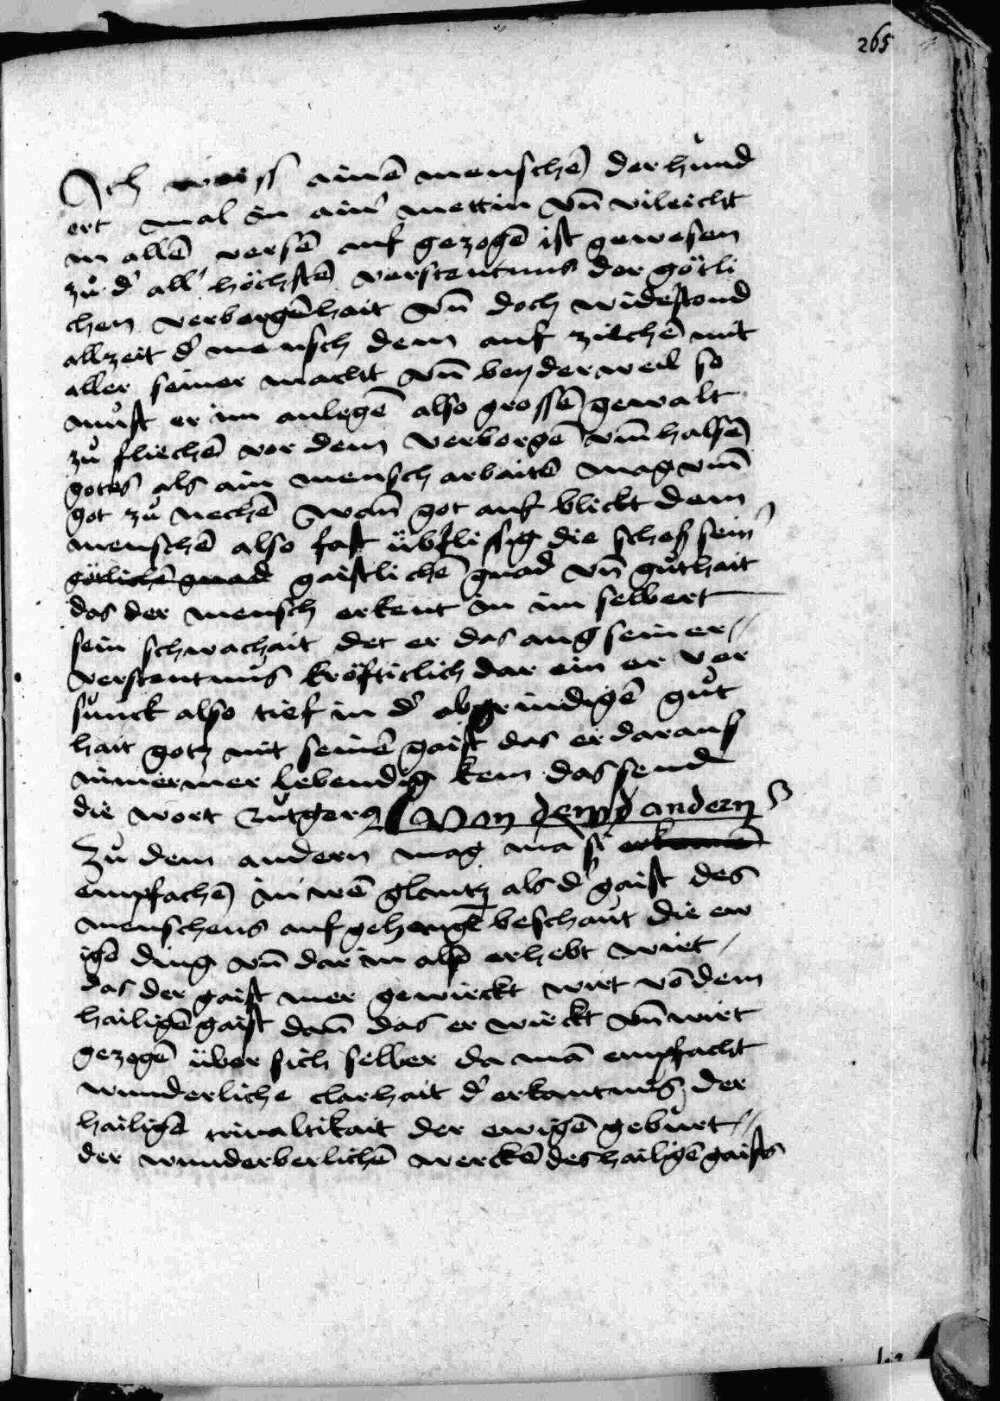 265
Ich waiss ainē menschē der hund
ert mal in ainˀ mettin vn̄ vileicht
in allē versē auf gezogē ist gewesen
zů dˀ allˀ höchstē verstentnus der götli
chen verborgēhait vn̄ doch widerstond
allzeit dˀ mensch dem auf ziechē mit
aller seiner macht vn̄ bey der weil so
můst er im anlegē also grossē gewalt
zů fliechē vor dem verborgē vm̄halsē
gotes als ain mensch arbaitē mag vm̄
got zů nechē Wan̄ got auf blickt dem
menschē also fast übˀflissig die schos seinˀ
götlichē gnad gaistlichē gnad vn̄ gůthait
das der mensch erkent in im selbert
sein schwachait det er das aug seiner
verstentnus kröfticlich dar ein er ver
sunck also tief in dˀ abgrindigē gůt
hait gotz mit seinē gaist das er daraus
nimermer lebendig kem das send
die wort Rutgers Von dem andern
Zů dem andern mag mā sˀ erkennē
empfachē in wē glantz als dˀ gaist des
menschens auf gehengt beschaut die ew
igē ding vn̄ dar in also erhebt wirt
das der gaist mer gewirckt wirt vō dem
hailigē gaist dan̄ das er wirckt vn̄ wirt
gezogē über sich selber da mā empfacht
wunderliche clarhait dˀ erkantnus der
hailigē trivaltikait der ewigē geburt
der wunderberlichē werckē des hailigē gaists